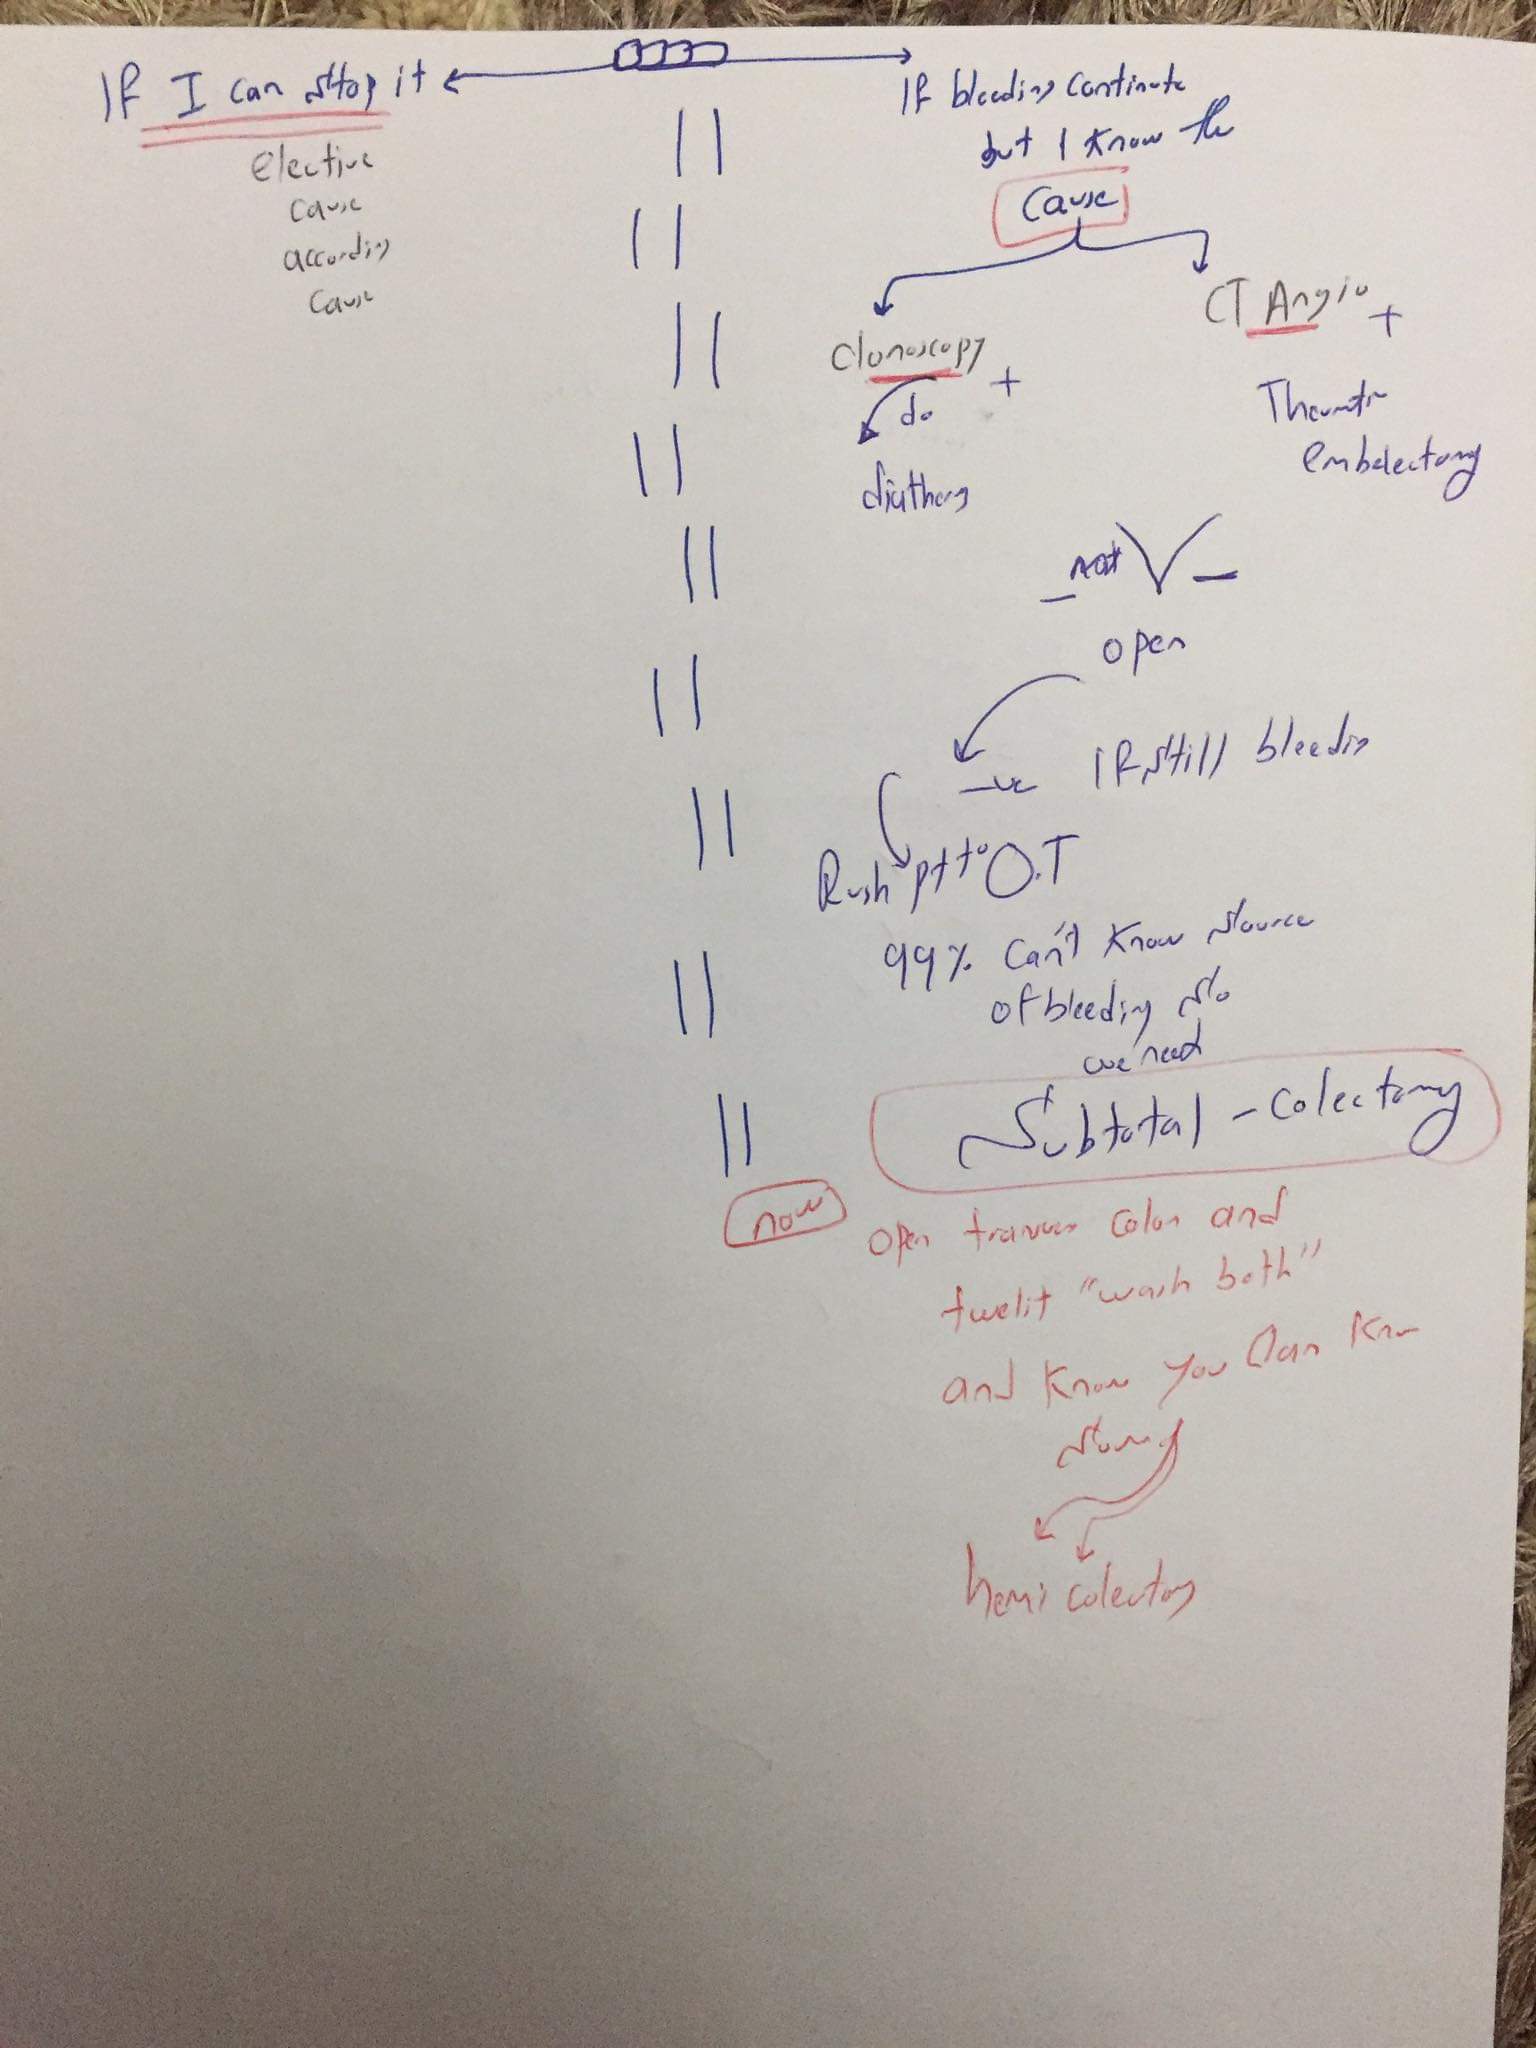 If I can stop it
elective
cause
according
cause
If bleeding continute
but I know the
cause
Clonoscopy +
do
diathery
CT Angio +
embolectomy
not
open
-ve If still bleedin
Rush pt to O.T
99% can't know source
of bleeding so
we need
Subtotal - colectomy
now
open transvers colon and
"wash both"
and know you can know
hemi colectomy